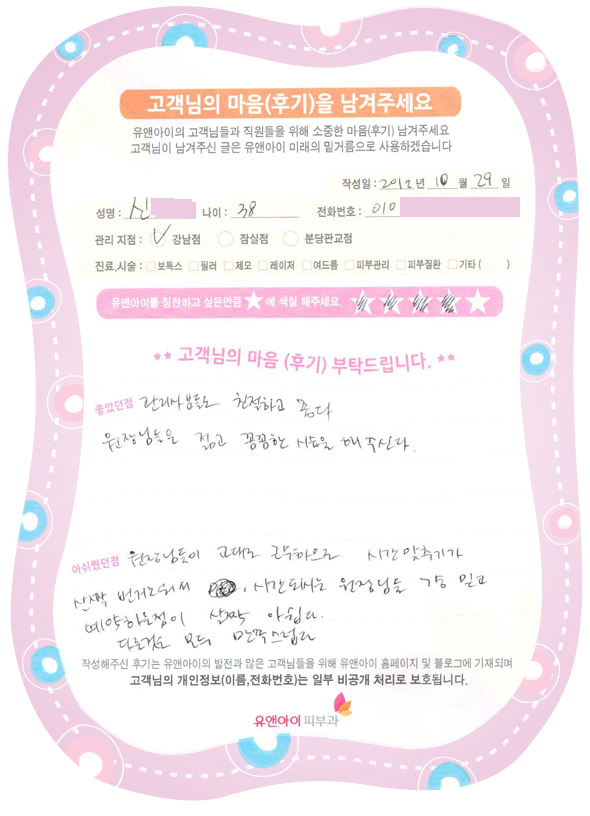 고객님의 마음(후기)을 남겨주세요
유앤아이의 고객님들과 직원들을 위해 소중한 마음(후기) 남겨주세요
고객님이 남겨주신 글은 유앤아이 미래의 밑거름으로 사용하겠습니다
작성일 : 2012 년 10 월 29 일
성명 : 신 나이 : 38 전화번호 : 010
관리 지점 : 강남점 잠실점 분당판교점
진료,시술 : 보톡스 필러 제모 레이저 여드름 피부관리 피부질환 기타 ( )
유앤아이를 칭찬하고 싶은만큼 ★ 에 색칠 해주세요.
** 고객님의 마음 (후기) 부탁드립니다. **
좋았던점 관리사분들도 친절하고 좋다
원장님들은 젊고 꼼꼼한 시술을 해주신다.
아쉬웠던점 원장님들이 교대로 근무하므로 시간 맞추기가
살짝 번거로워서 시간되시는 원장님들 믿고
예약하는점이 살짝 아쉽다.
다른것은 모두 만족스럽다
작성해주신 후기는 유앤아이의 발전과 많은 고객님들을 위해 유앤아이 홈페이지 및 블로그에 기재되며
고객님의 개인정보(이름,전화번호)는 일부 비공개 처리로 보호됩니다.
유앤아이 피부과